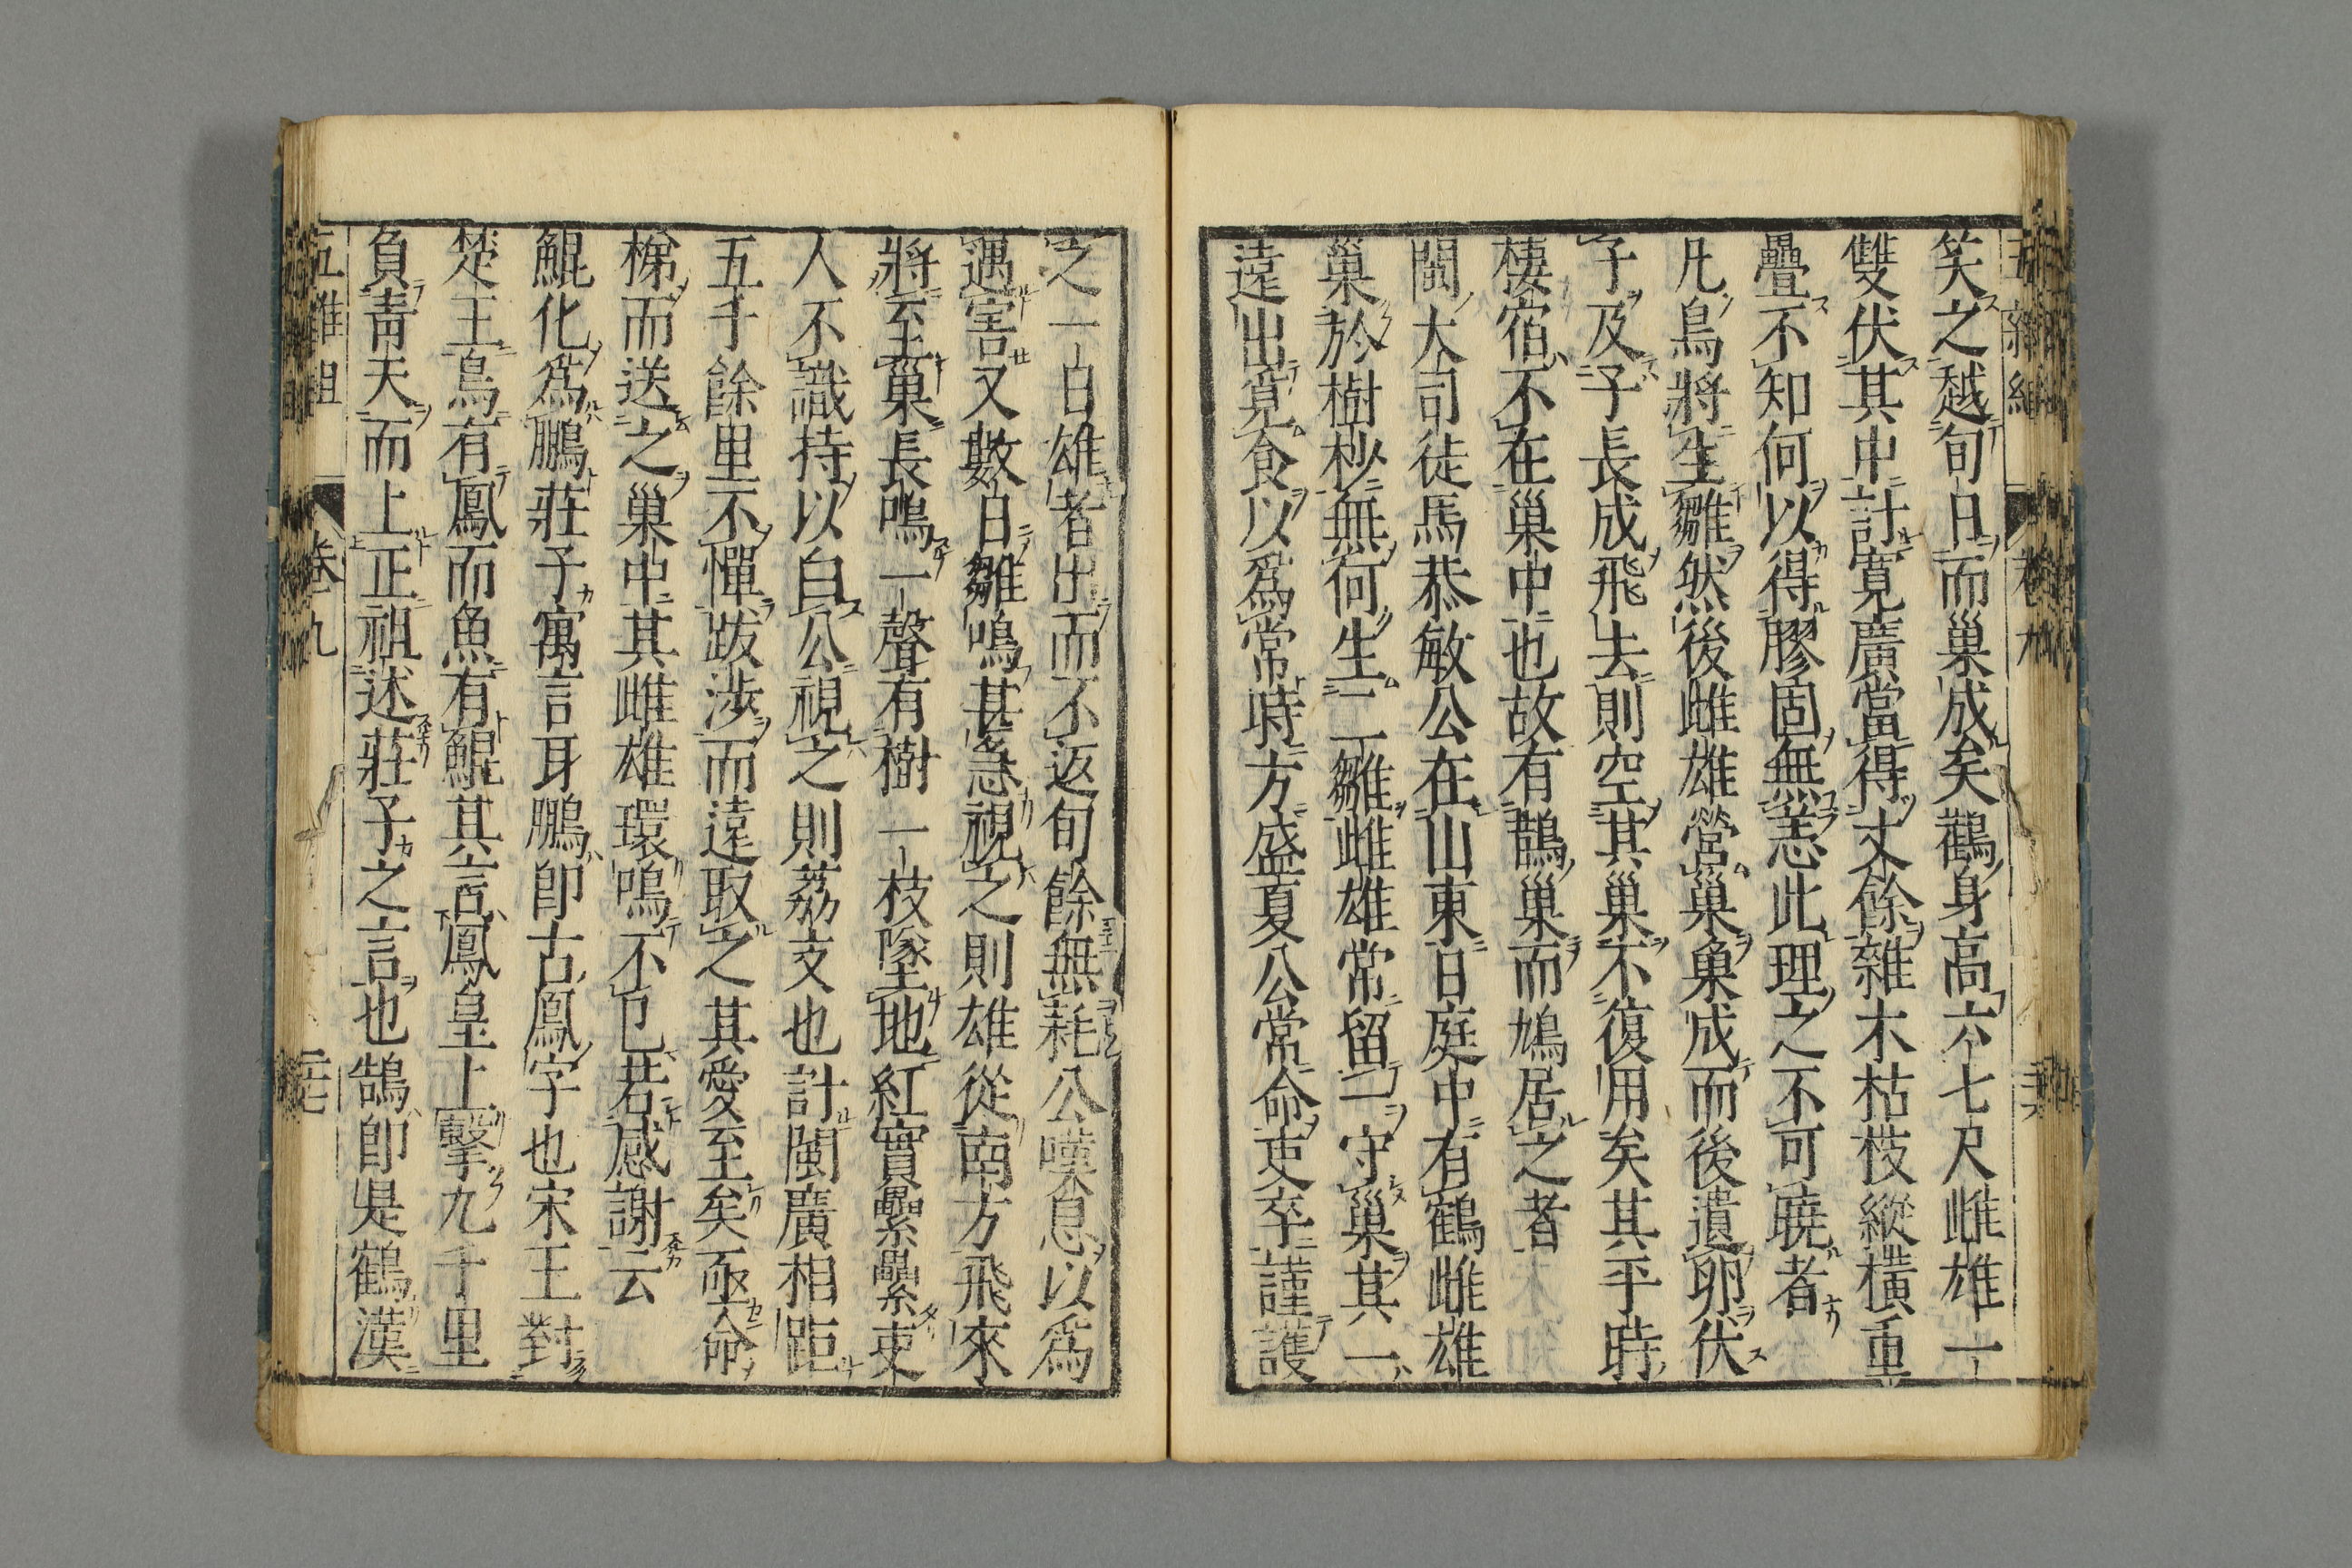 笑之越旬日而巢成矣鸛身高六七尺雌雄一
雙伏其中計寬廣當得丈餘雜木枯枝縱橫重
疊不知何以得膠固無恙此理之不可曉者
凡鳥將生雛然後雌雄營巢巢成而後遺卵伏
子及子長成飛去則空其巢不復用矣其平時
棲宿不在巢中也故有鵲巢而鳩居之者
閩大司徒馬恭敏公在山東日庭中有鶴雌雄
巢於樹杪無何生二雛雌雄常留一守巢其一
遠出覓食以爲常時方盛夏公常命吏卒謹護
之一日雄者出而不返旬餘無耗公嘆息以爲
遇害又數日雛鳴甚急視之則雄從南方飛來
將至巢長鳴一聲有樹一枝墜地紅實纍纍吏
人不識持以白公視之則荔支也計閩廣相距
五千餘里不憚跋涉而遠取之其愛至矣亟命
梯而送之巢中其雌雄環鳴不已若感謝云
鯤化爲鵬莊子寓言耳鵬卽古鳳字也宋玉對
楚王鳥有鳳而魚有鯤其言鳳皇上擊九千里
負靑天而上正祖述莊子之言也鵠卽是鶴漢
五雜組 卷九